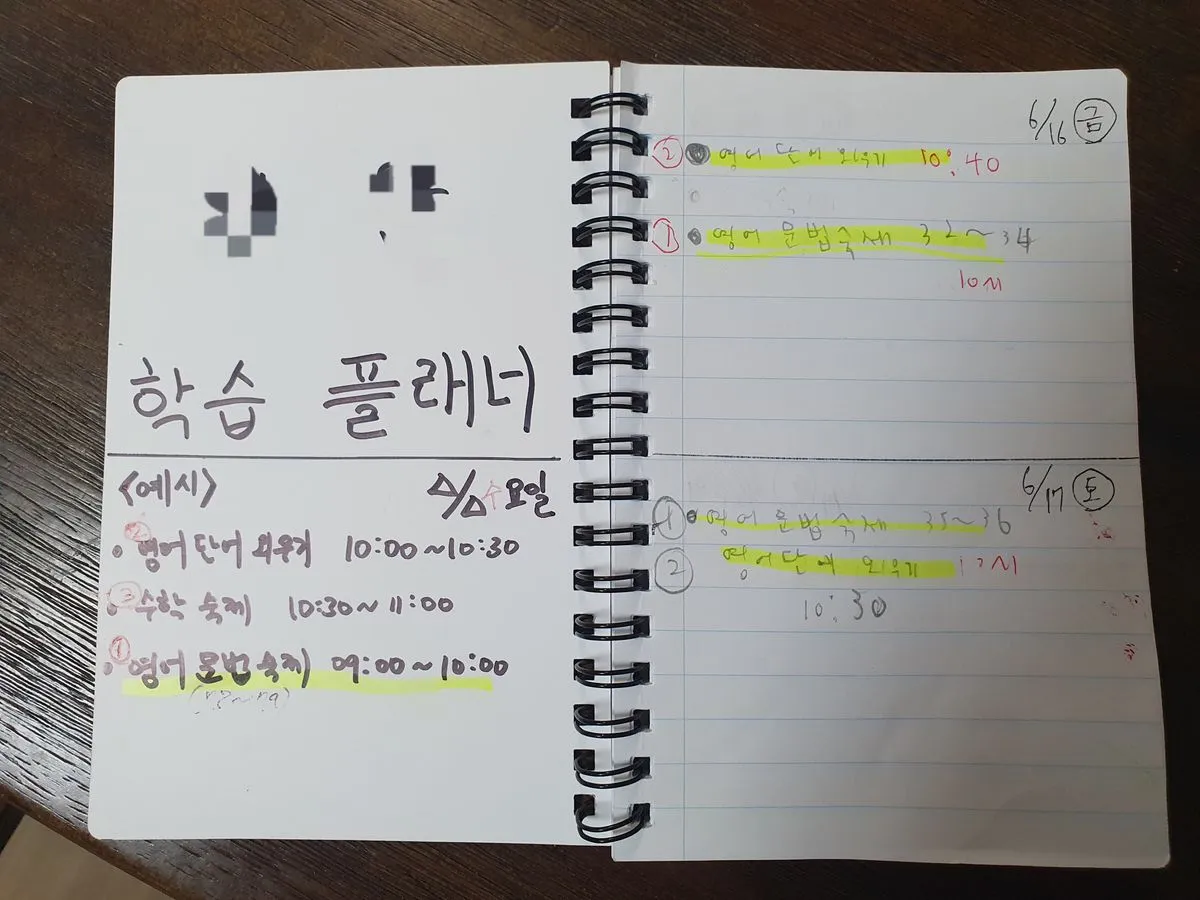 학습 플래너
<예시> △/△ 수요일
② 영어 단어 외우기 10:00~10:30
③ 수학 숙제 10:30~11:00
① 영어 문법 숙제 09:00~10:00
6/16 금
② 영어 단어 외우기 10:40
① 영어 문법숙제 32~34
10시
6/17 토
① 영어 문법숙제 35~36
② 영어단어 외우기
10:30